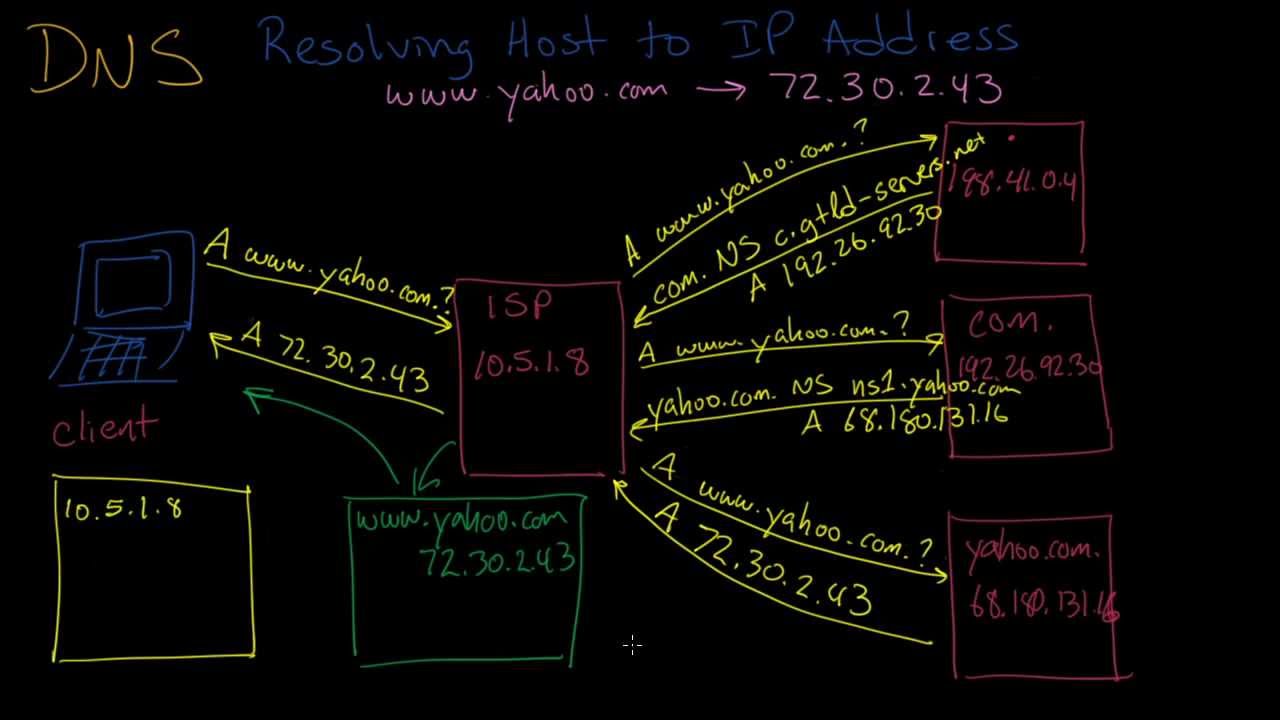 DNS Resolving Host to IP Address
www.yahoo.com → 72.30.2.43
A www.yahoo.com.?
A 72.30.2.43
client
10.5.1.8
ISP
10.5.1.8
www.yahoo.com
72.30.2.43
A www.yahoo.com.?
com. NS c.gtld-servers.net
A 192.26.92.30
.
198.41.0.4
A www.yahoo.com.?
yahoo.com. NS ns1.yahoo.com
A 68.180.131.16
com.
192.26.92.30
A www.yahoo.com.?
A 72.30.2.43
yahoo.com.
68.180.131.16